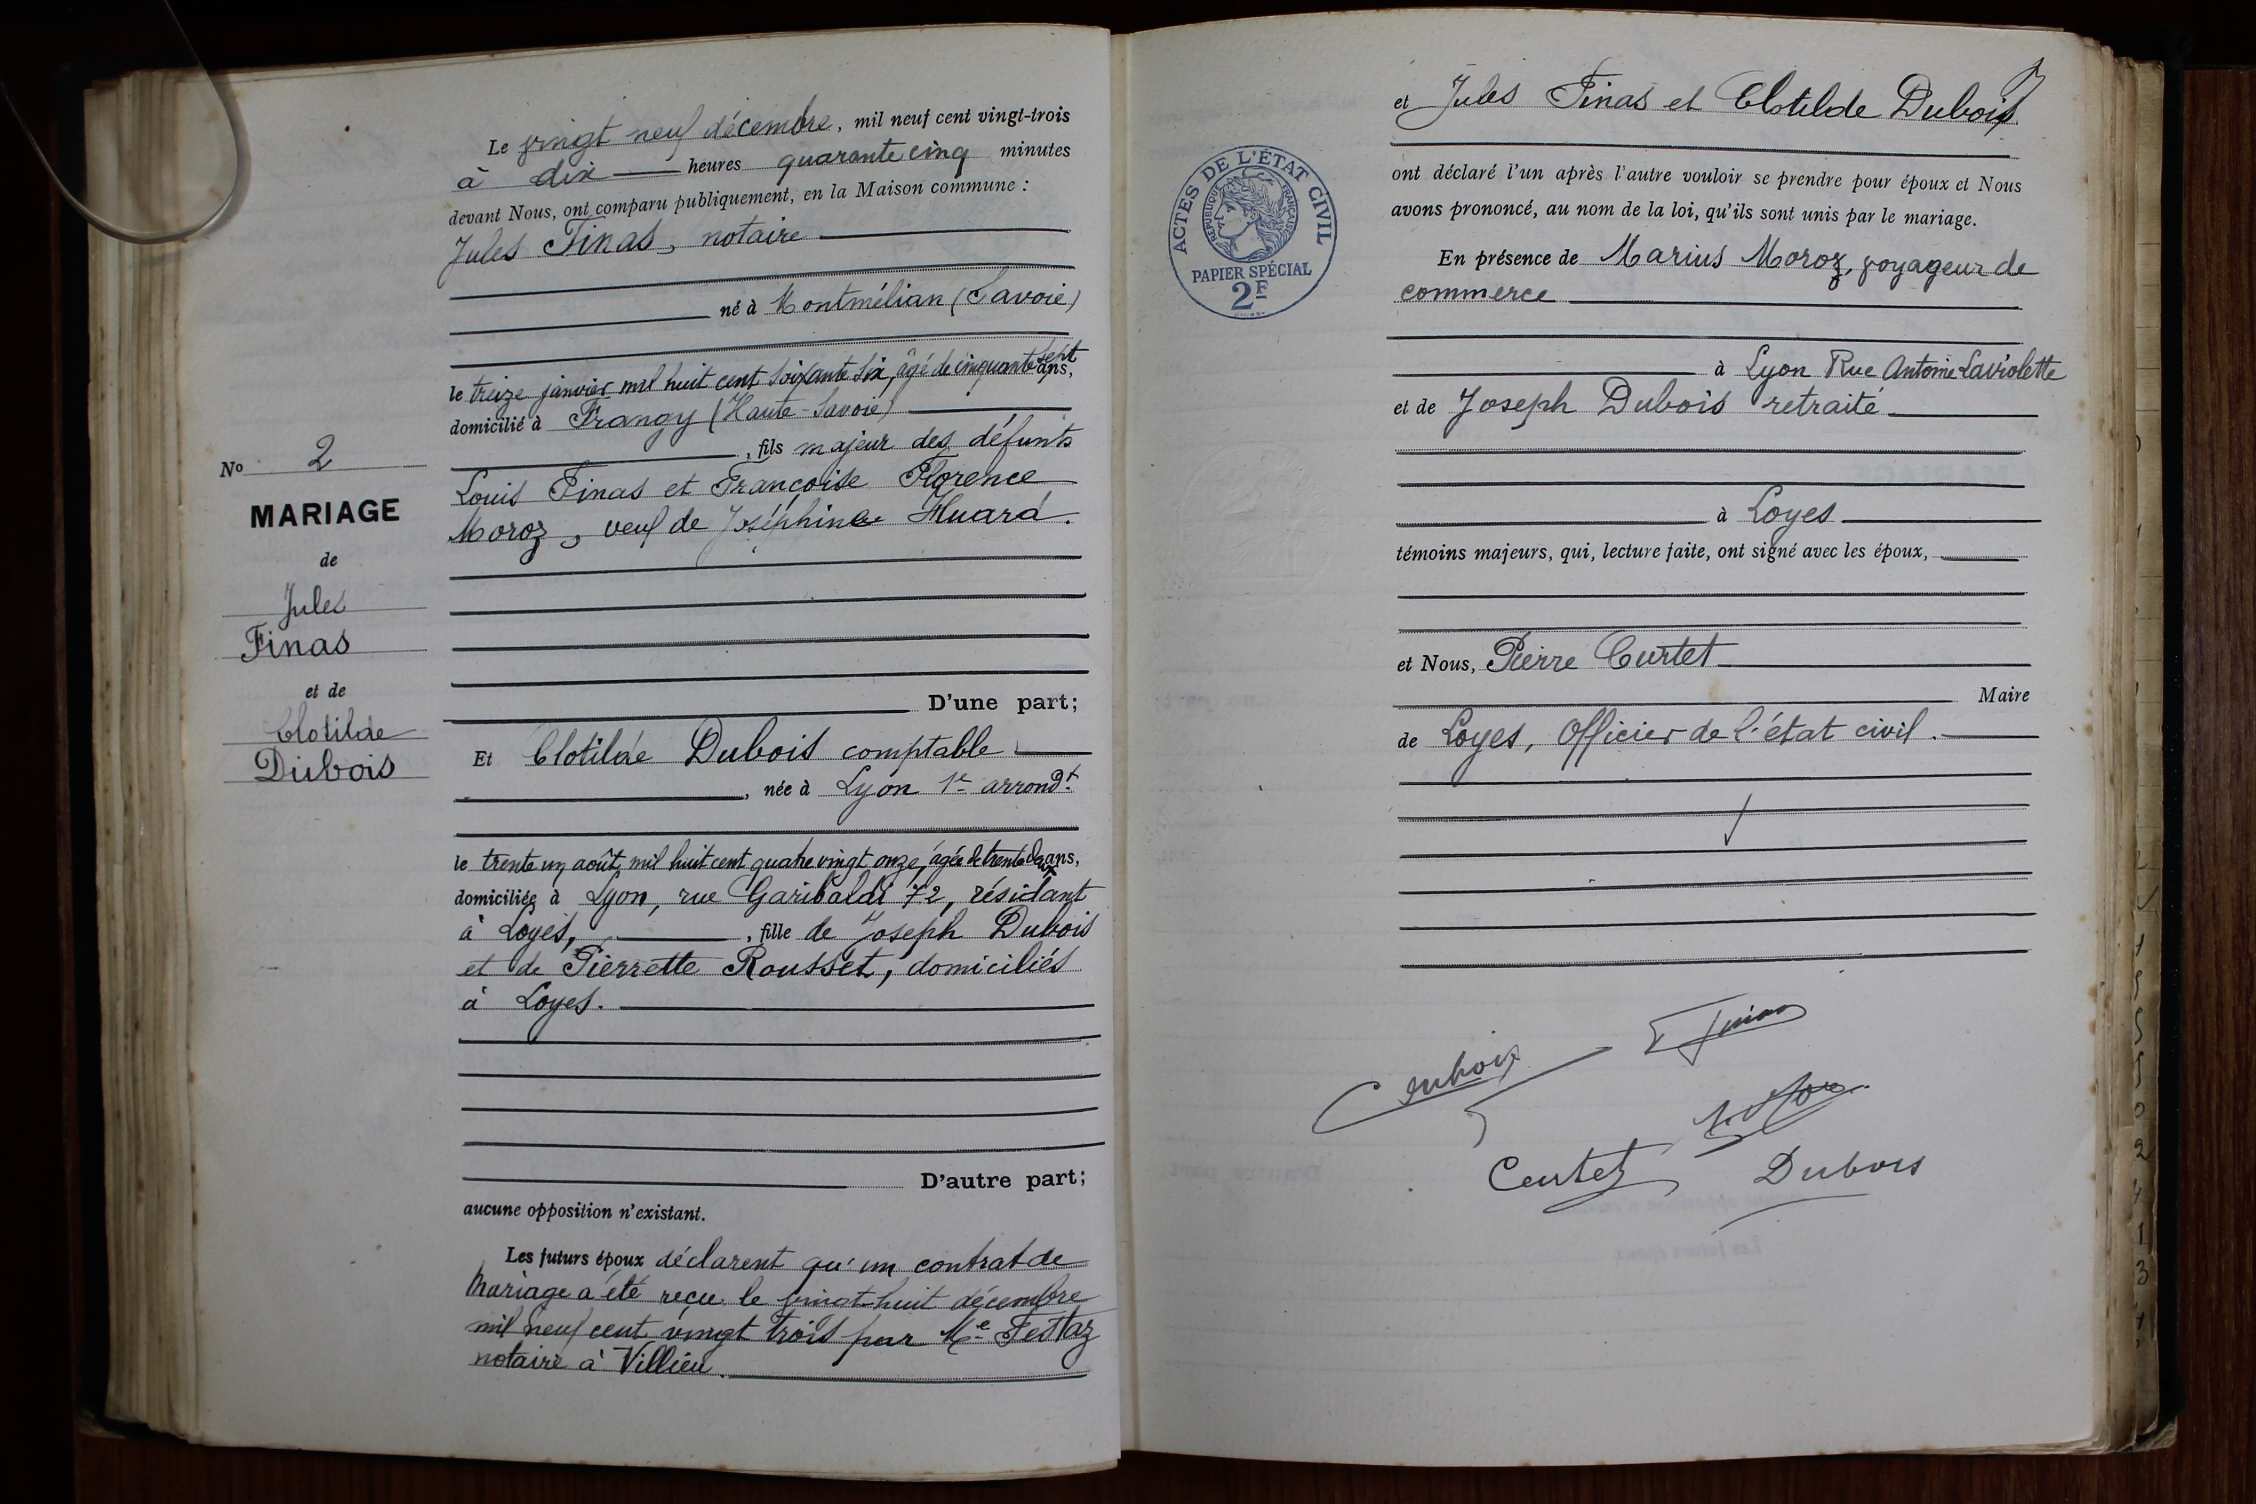 Le vingt neuf décembre, mil neuf cent vingt-trois
à dix heures quarante cinq minutes
devant Nous, ont comparu publiquement, en la Maison commune :
Jules Finas, notaire
né à Montmélian (Savoie)
le treize janvier mil huit cent soixante six, âgé de cinquante sept ans,
domicilié à Frangy (Haute-Savoie)
, fils majeur des défunts
Louis Finas et Françoise Florence
Moroz, veuf de Joséphine Huard.
No 2
MARIAGE
de
Jules
Finas
et de
Clotilde
Dubois
D'une part;
Et Clotilde Dubois comptable
, née à Lyon 1er arrondt.
le trente un août mil huit cent quatre vingt onze, âgée de trente deux ans,
domiciliée à Lyon, rue Garibaldi 72, résidant
à Loyes, , fille de Joseph Dubois
et de Pierrette Rousset, domiciliés
à Loyes.
D'autre part;
aucune opposition n'existant.
Les futurs époux déclarent qu'un contrat de
mariage a été reçu le vingt-huit décembre
mil neuf cent vingt trois par Me Festaz
notaire à Villieu.
et Jules Finas et Clotilde Dubois
ont déclaré l'un après l'autre vouloir se prendre pour époux et Nous
avons prononcé, au nom de la loi, qu'ils sont unis par le mariage.
ACTES DE L'ÉTAT CIVIL
RÉPUBLIQUE FRANÇAISE
PAPIER SPÉCIAL
2F
En présence de Marius Moroz, voyageur de
commerce
à Lyon Rue Antoine Laviolette
et de Joseph Dubois retraité
à Loyes
témoins majeurs, qui, lecture faite, ont signé avec les époux,
et Nous, Pierre Curtet
Maire
de Loyes, Officier de l'état civil.
J Finas
C Dubois
Curtet
Dubois